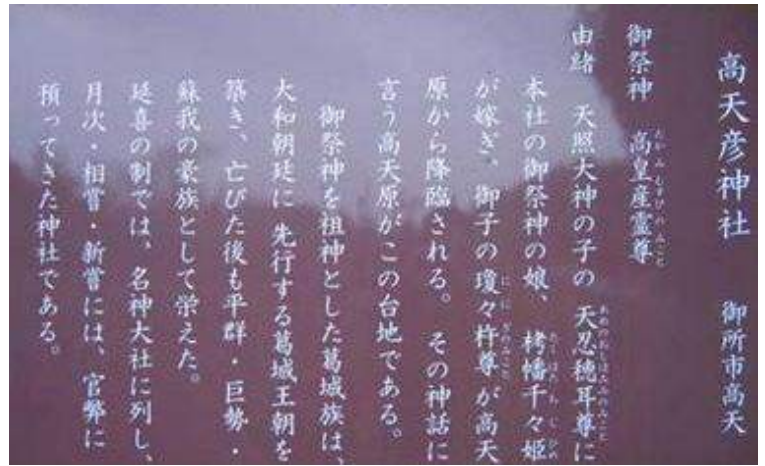 高天彦神社 御所市高天
御祭神 高皇産霊尊
由緒 天照大神の子の 天忍穂耳尊に
本社の御祭神の娘、 栲幡千々姫
が嫁ぎ、御子の瓊々杵尊が高天
原から降臨される。 その神話に
言う高天原がこの台地である。
御祭神を祖神とした葛城族は、
大和朝廷に 先行する葛城王朝を
築き、亡びた後も平群・巨勢・
蘇我の豪族として栄えた。
延喜の制では、名神大社に列し、
月次・相嘗・新嘗には、官幣に
預ってきた神社である。